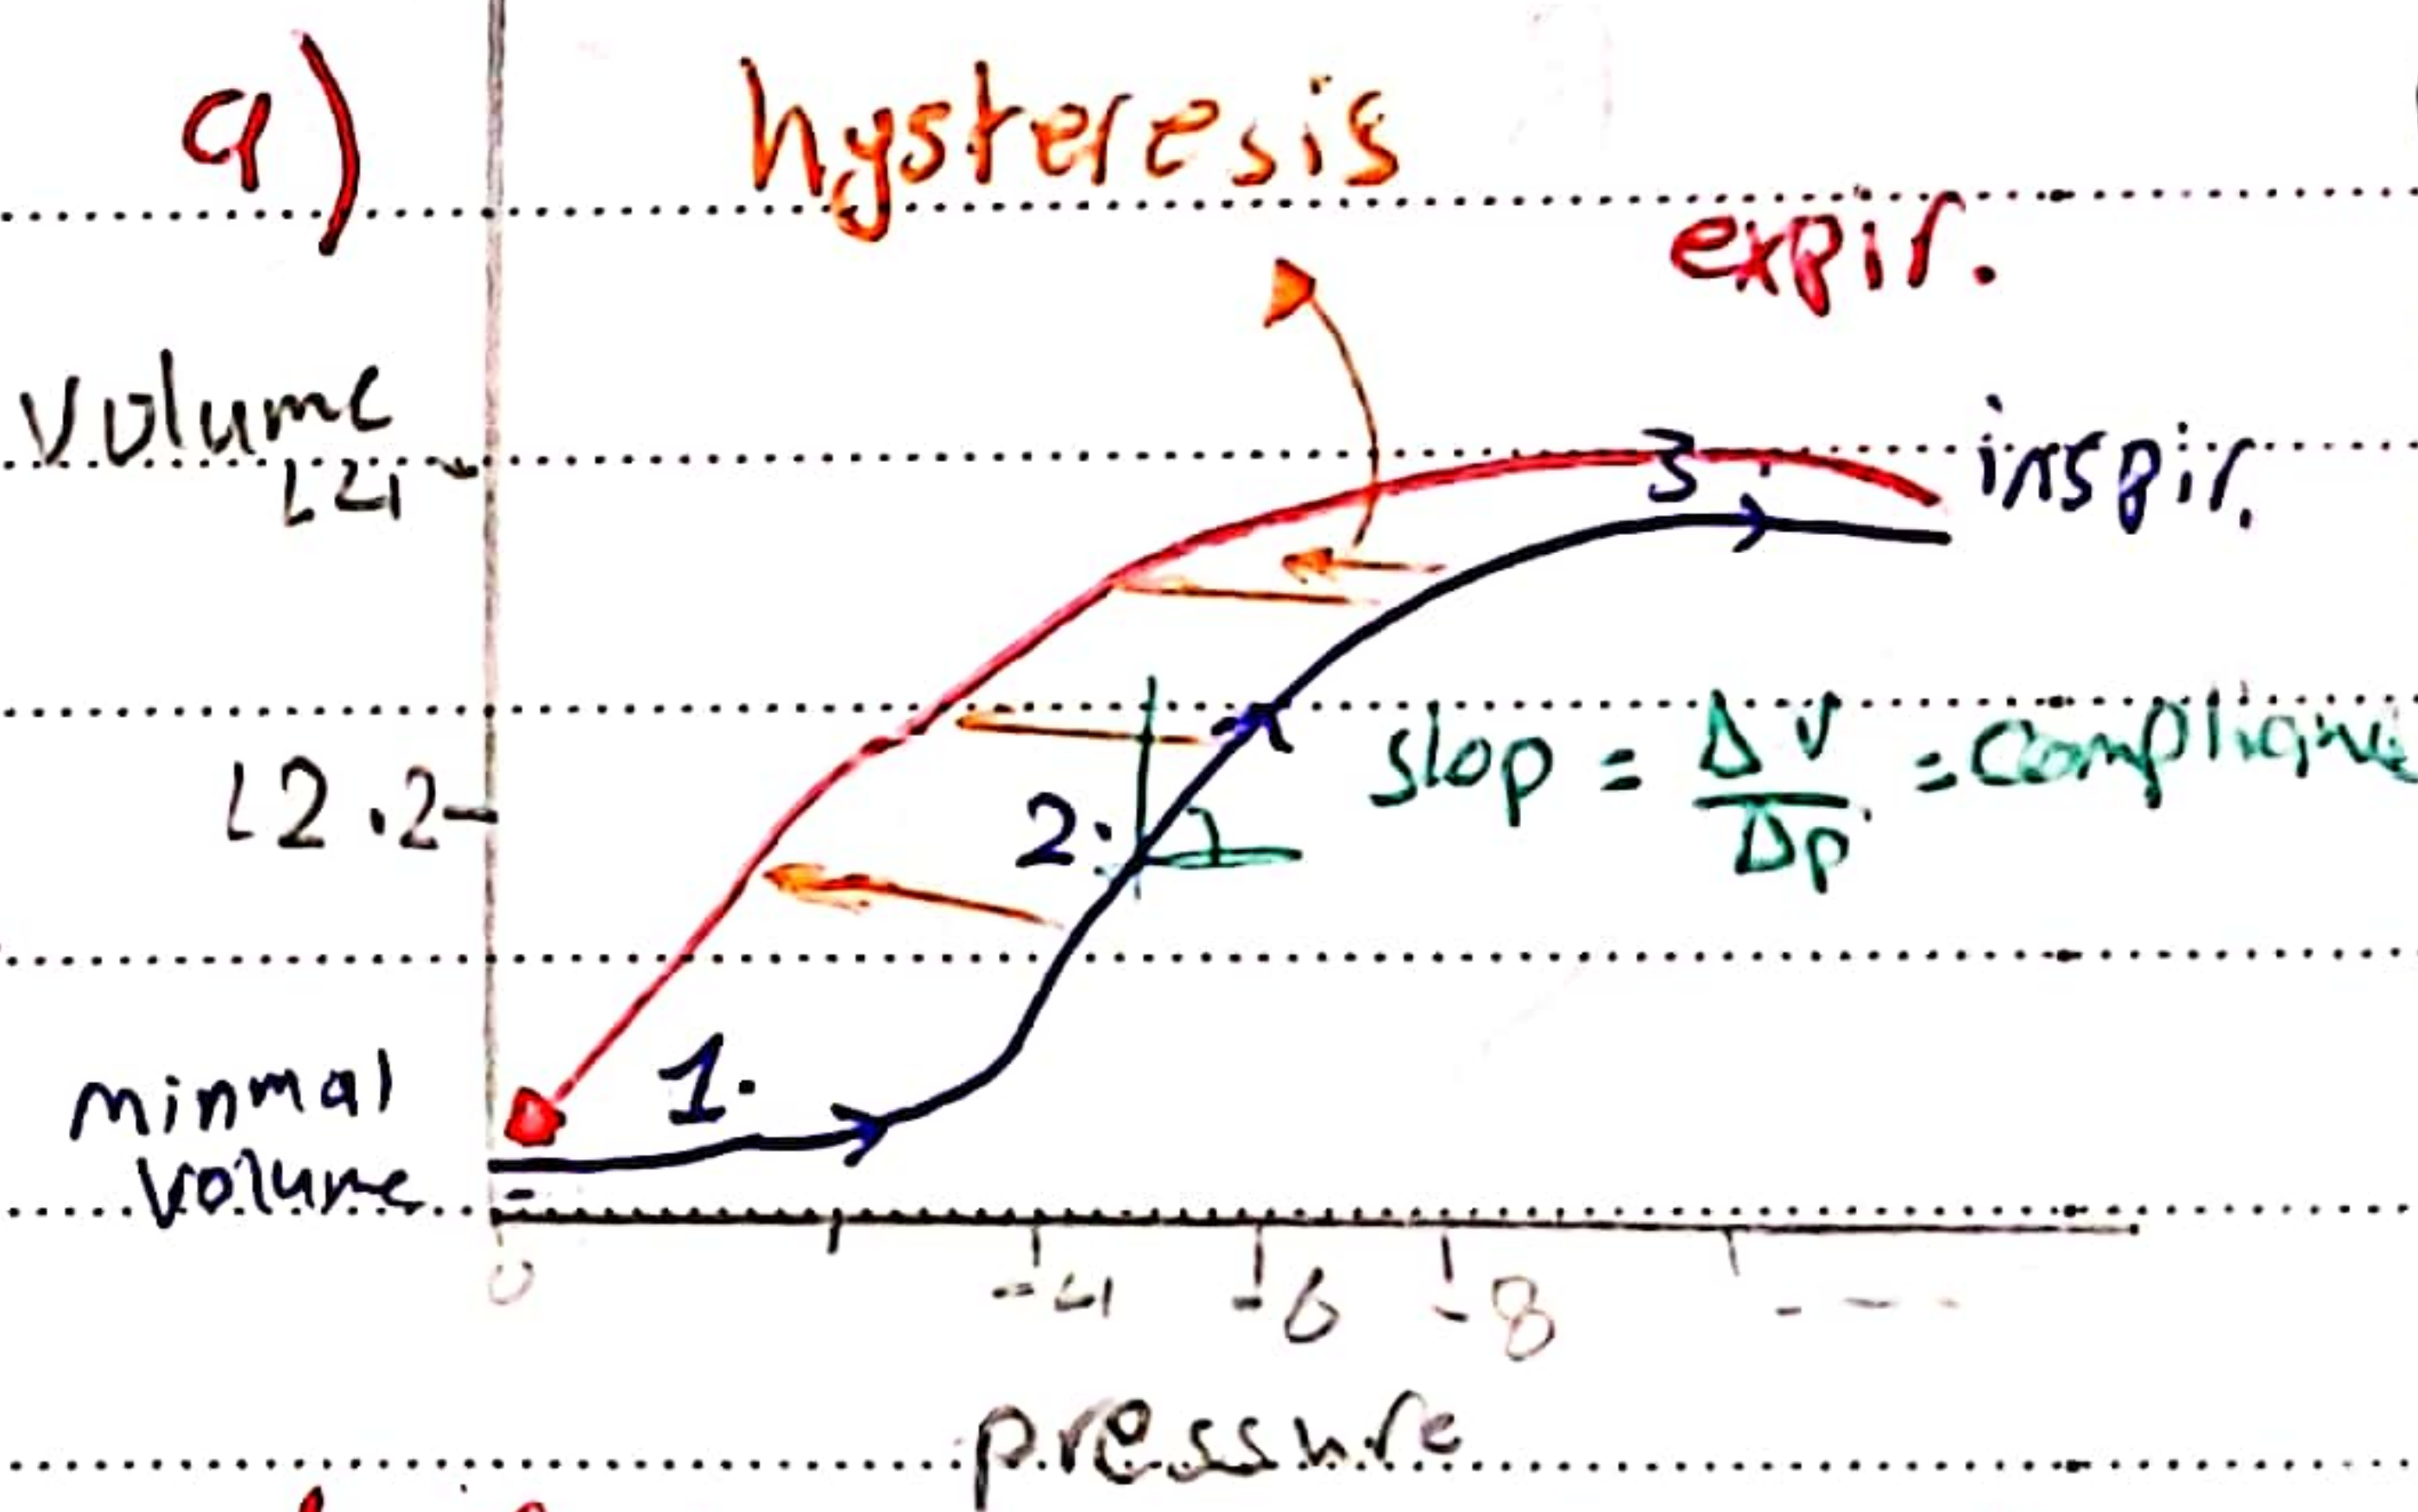 a)
hysteresis
expir.
volume
L4
inspir.
3.
slop = ΔV/Δp = Complianc
2.
L2.2
1.
minmal
volume
0 -4 -6 -8 - - - -
pressure